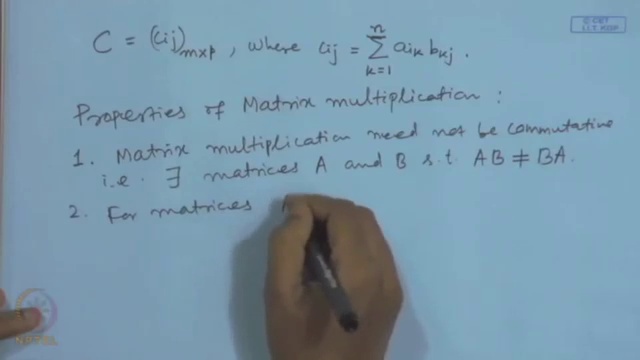 © CET
I.I.T. KGP
C = (cij)mxp, where cij = n∑k=1 aik bkj.
Properties of Matrix multiplication :
1. Matrix multiplication need not be commutative
i.e. ∃ matrices A and B s.t. AB ≠ BA.
2. For matrices
NPTEL